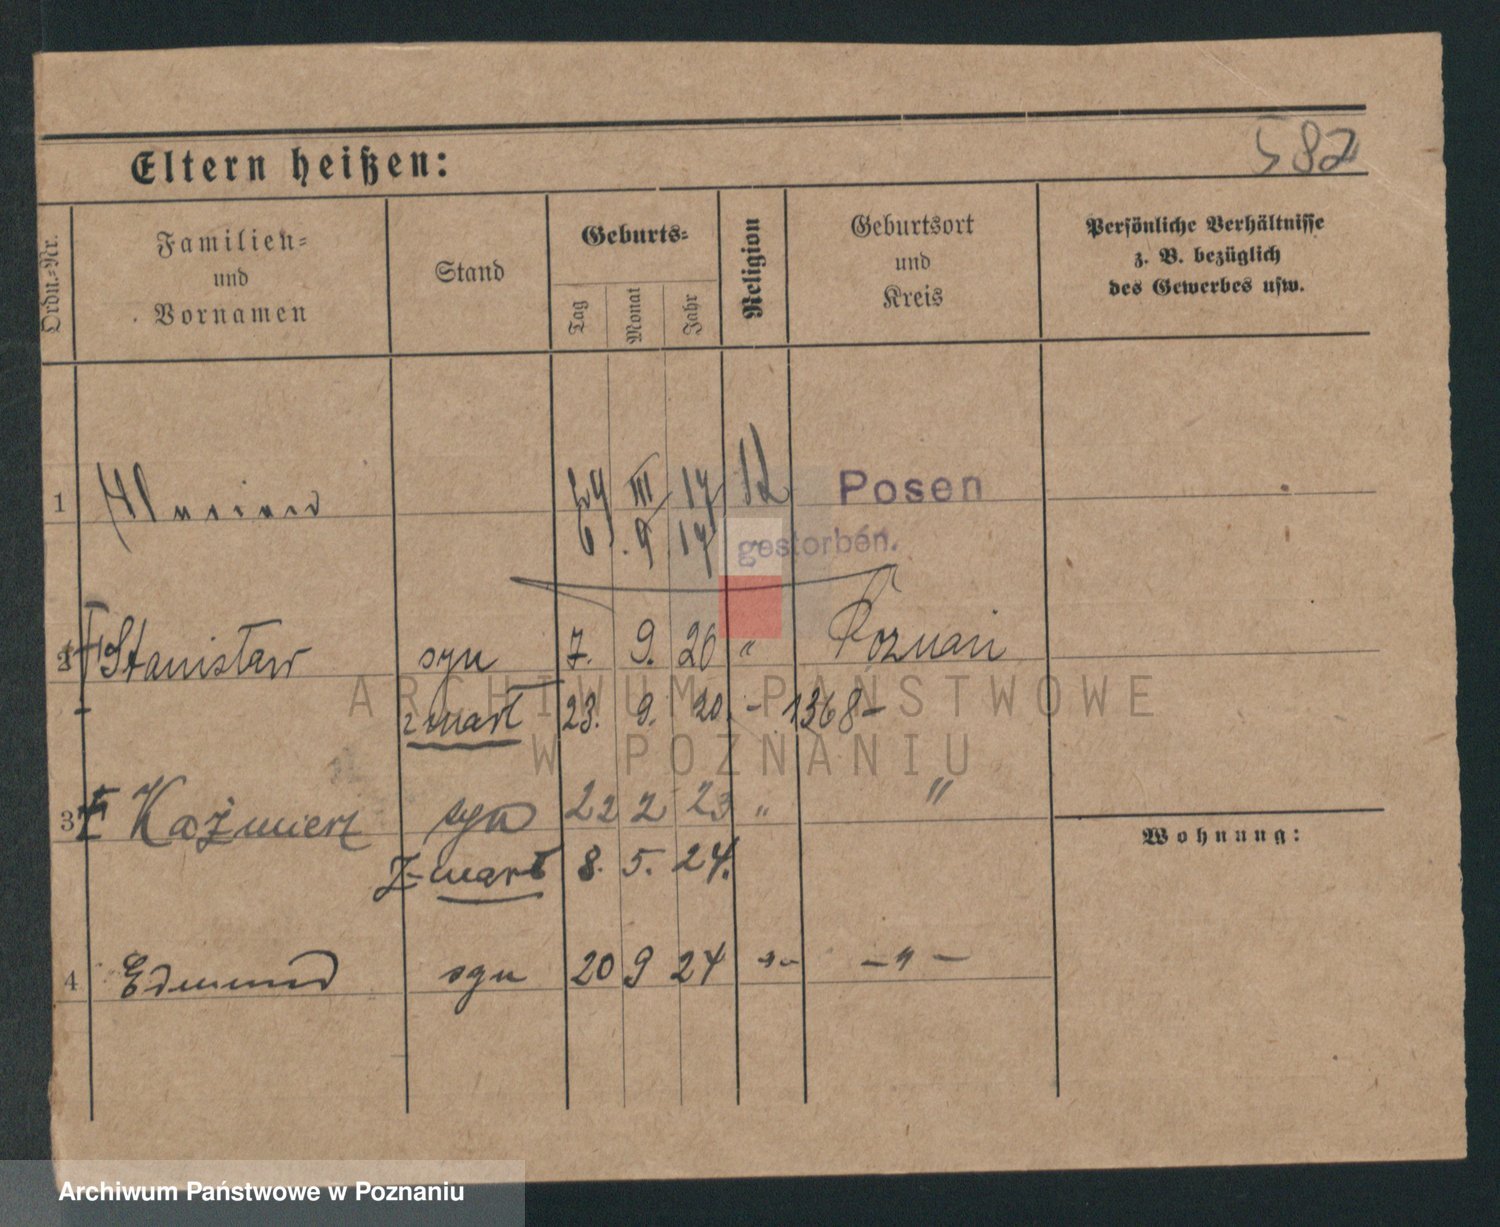 582
Eltern heißen:
Ordn.-Nr.
Familien-
und
Vornamen
Stand
Geburts-
Tag
Monat
Jahr
Religion
Geburtsort
und
Kreis
Persönliche Verhältnisse
z. B. bezüglich
des Gewerbes usw.
1 III 17 Posen
6. 9 17 gestorben.
2 Stanisław syn 7. 9. 20 " Poznań
zmarł 23. 9. 20. - 1368 -
3 Kazimierz syn 22 2 23 " "
Zmarł 8. 5. 24.
Wohnung:
4 Edmund syn 20 9 24 -"- -"-
ARCHIWUM PAŃSTWOWE
W POZNANIU
Archiwum Państwowe w Poznaniu